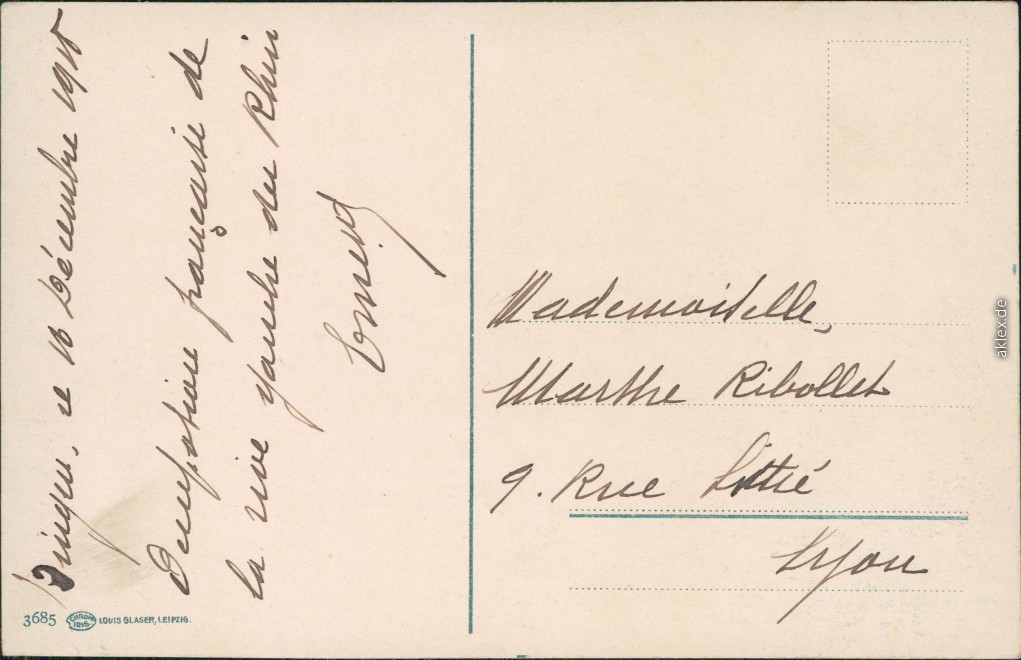 le 16 Décembre 1918
Occupation française de
la rive gauche du Rhin
Mademoiselle,
Marthe Ribollet
9. Rue Littré
Lyon
3685 CHROM IRIS LOUIS GLASER, LEIPZIG.
aklex.de